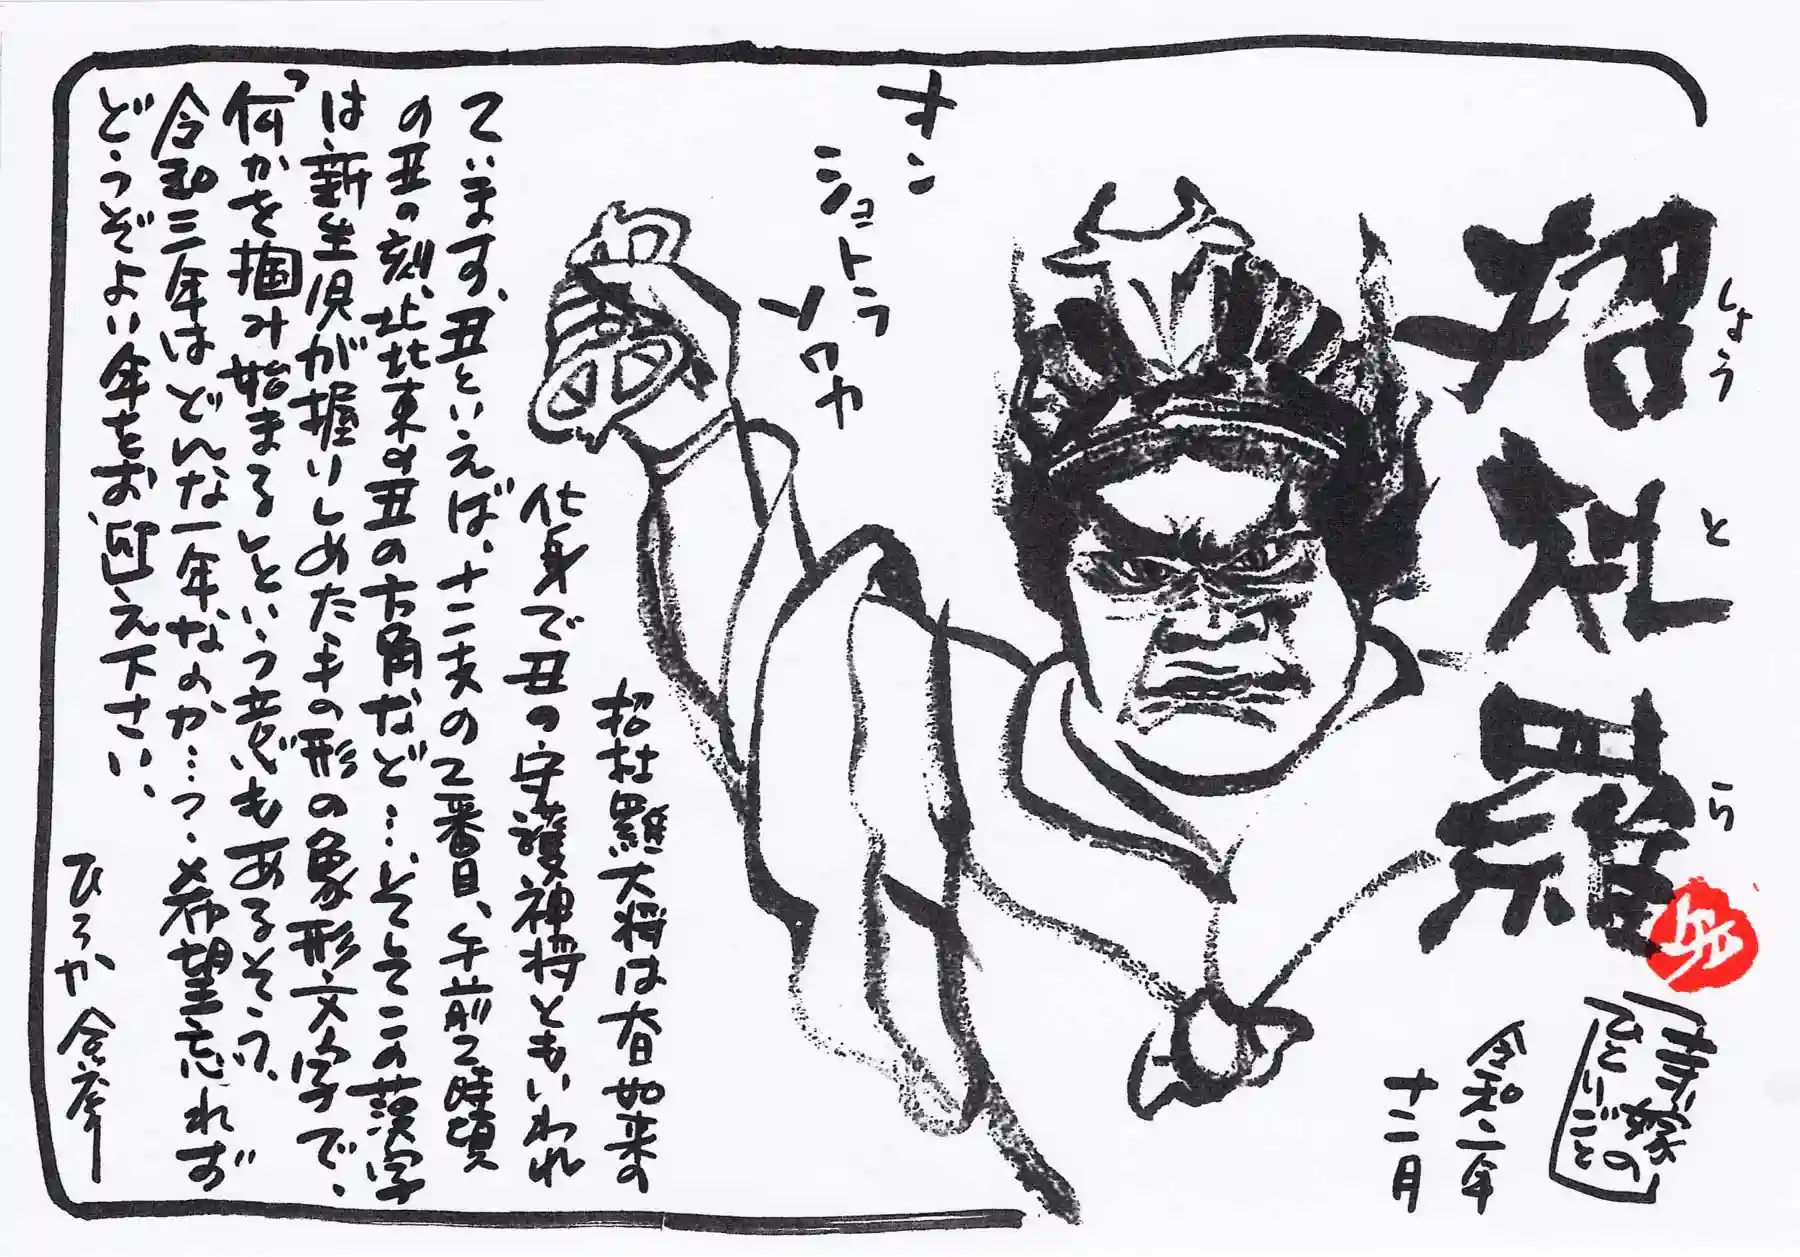 招杜羅
しょうとら
寺嫁の
ひとりごと
令和二年
十二月
オン
ショトラ
ソワカ
招杜羅大将は大日如来の
化身で丑の守護神将ともいわれ
ています。丑といえば、十二支の2番目、午前2時頃
の丑の刻、北北東の丑の方角など…。そしてこの漢字
は、新生児が握りしめた手の形の象形文字で、
「何かを掴み始まる」という意もあるそう。
令和三年はどんな一年なのか…?希望忘れず
どうぞよい年をお迎え下さい。
ひろか 合掌